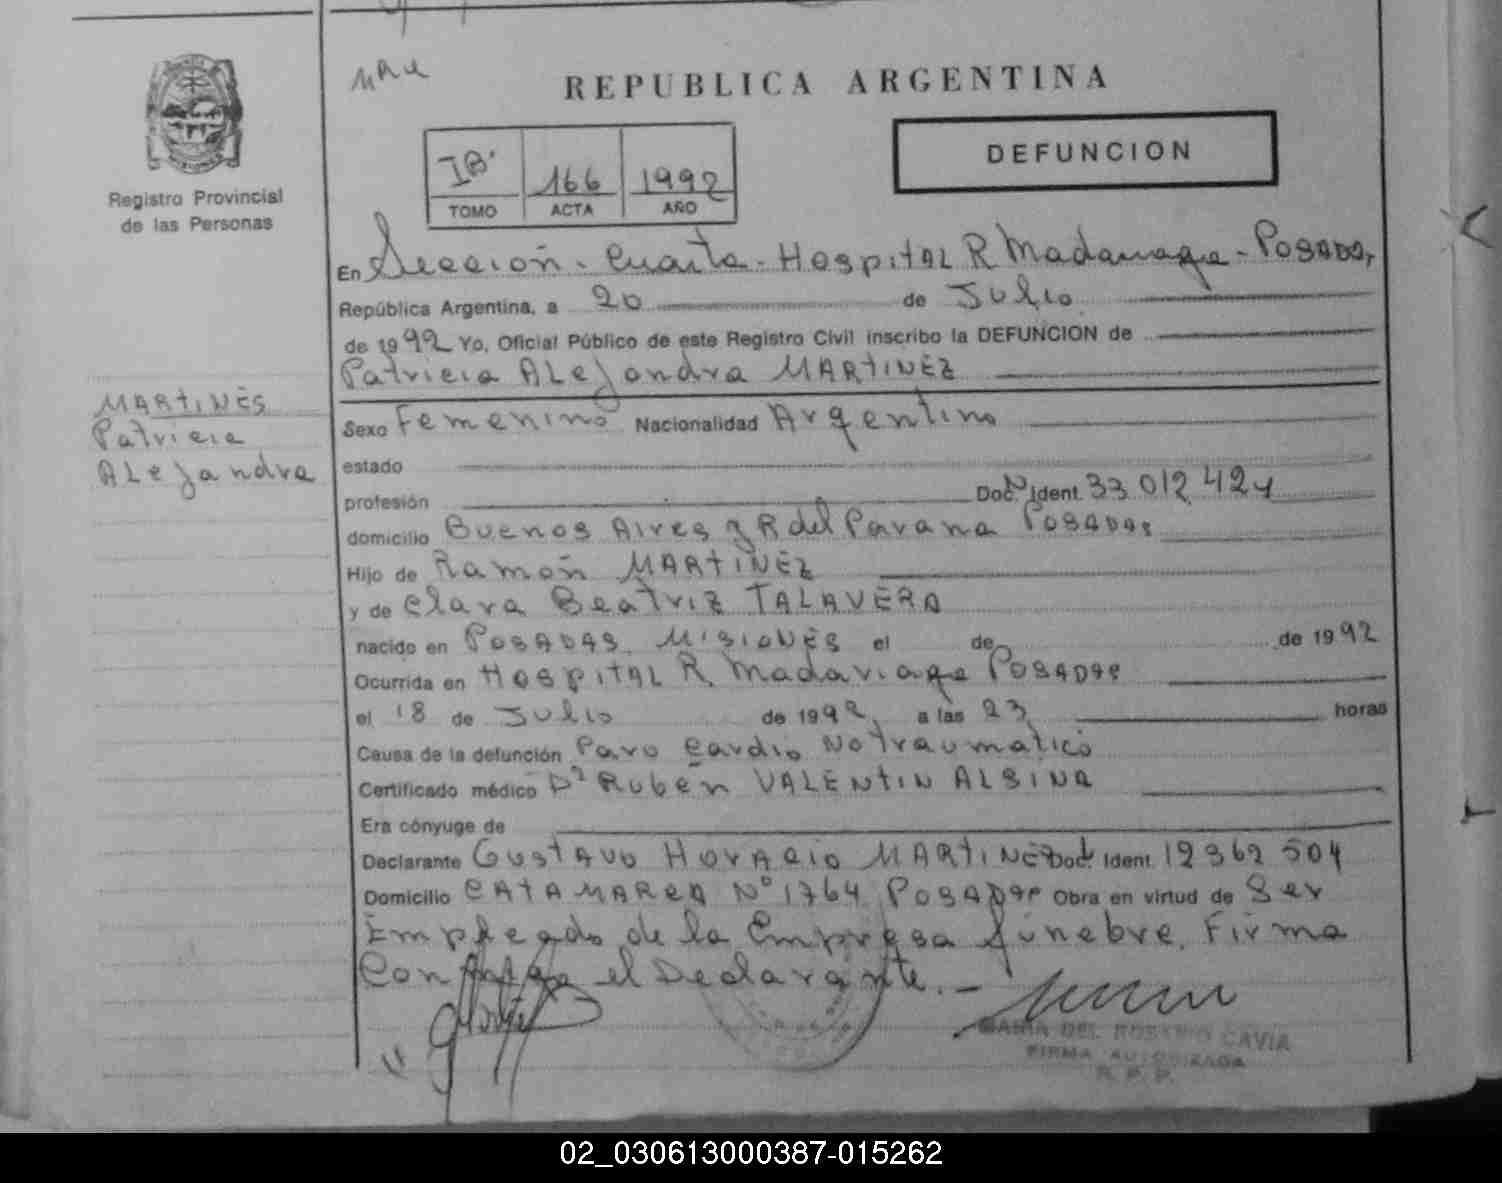 REPUBLICA ARGENTINA
DEFUNCION
166 1992
TOMO ACTA AÑO
Registro Provincial
de las Personas
En Sección - Cuarta - Hospital R Madariaga - Posadas,
República Argentina, a 20 de Julio
de 1992 Yo, Oficial Público de este Registro Civil inscribo la DEFUNCION de
Patricia Alejandra MARTINEZ
MARTINES
Patricia
Alejandra
Sexo Femenino Nacionalidad Argentino
estado
profesión Doc. Nº Ident. 33 012 424
domicilio Buenos Aires y R del Parana Posadas
Hijo de Ramón MARTINEZ
y de Clara Beatriz TALAVERA
nacido en Posadas Misiones el de de 1992
Ocurrida en Hospital R. Madariaga Posadas
el 18 de Julio de 1992 a las 23 horas
Causa de la defunción Paro Cardio No traumatico
Certificado médico Dr Rubén VALENTIN ALSINA
Era cónyuge de
Declarante Gustavo Horacio MARTINEZ Doc. Ident. 12362504
Domicilio CATAMARCA Nº 1764 Posadas Obra en virtud de Ser
Empleado de la Empresa fúnebre. Firma
el Declarante. -
MARIA DEL ROSARIO CAVIA
FIRMA AUTORIZADA
R. P. P.
02_030613000387-015262